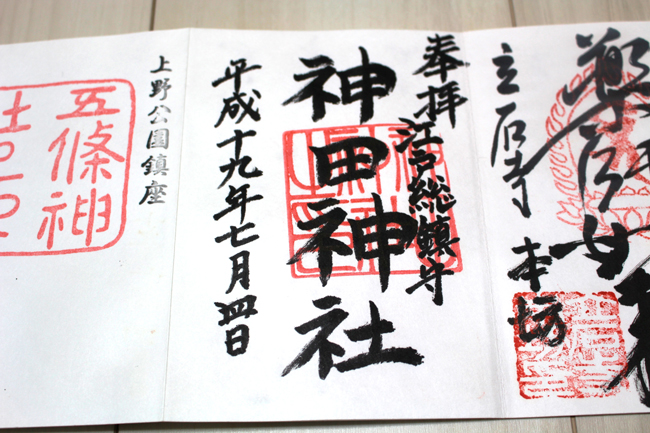 立石寺 本坊
奉拝
江戸総鎮守
神田神社
平成十九年七月四日
上野公園鎮座
五條神